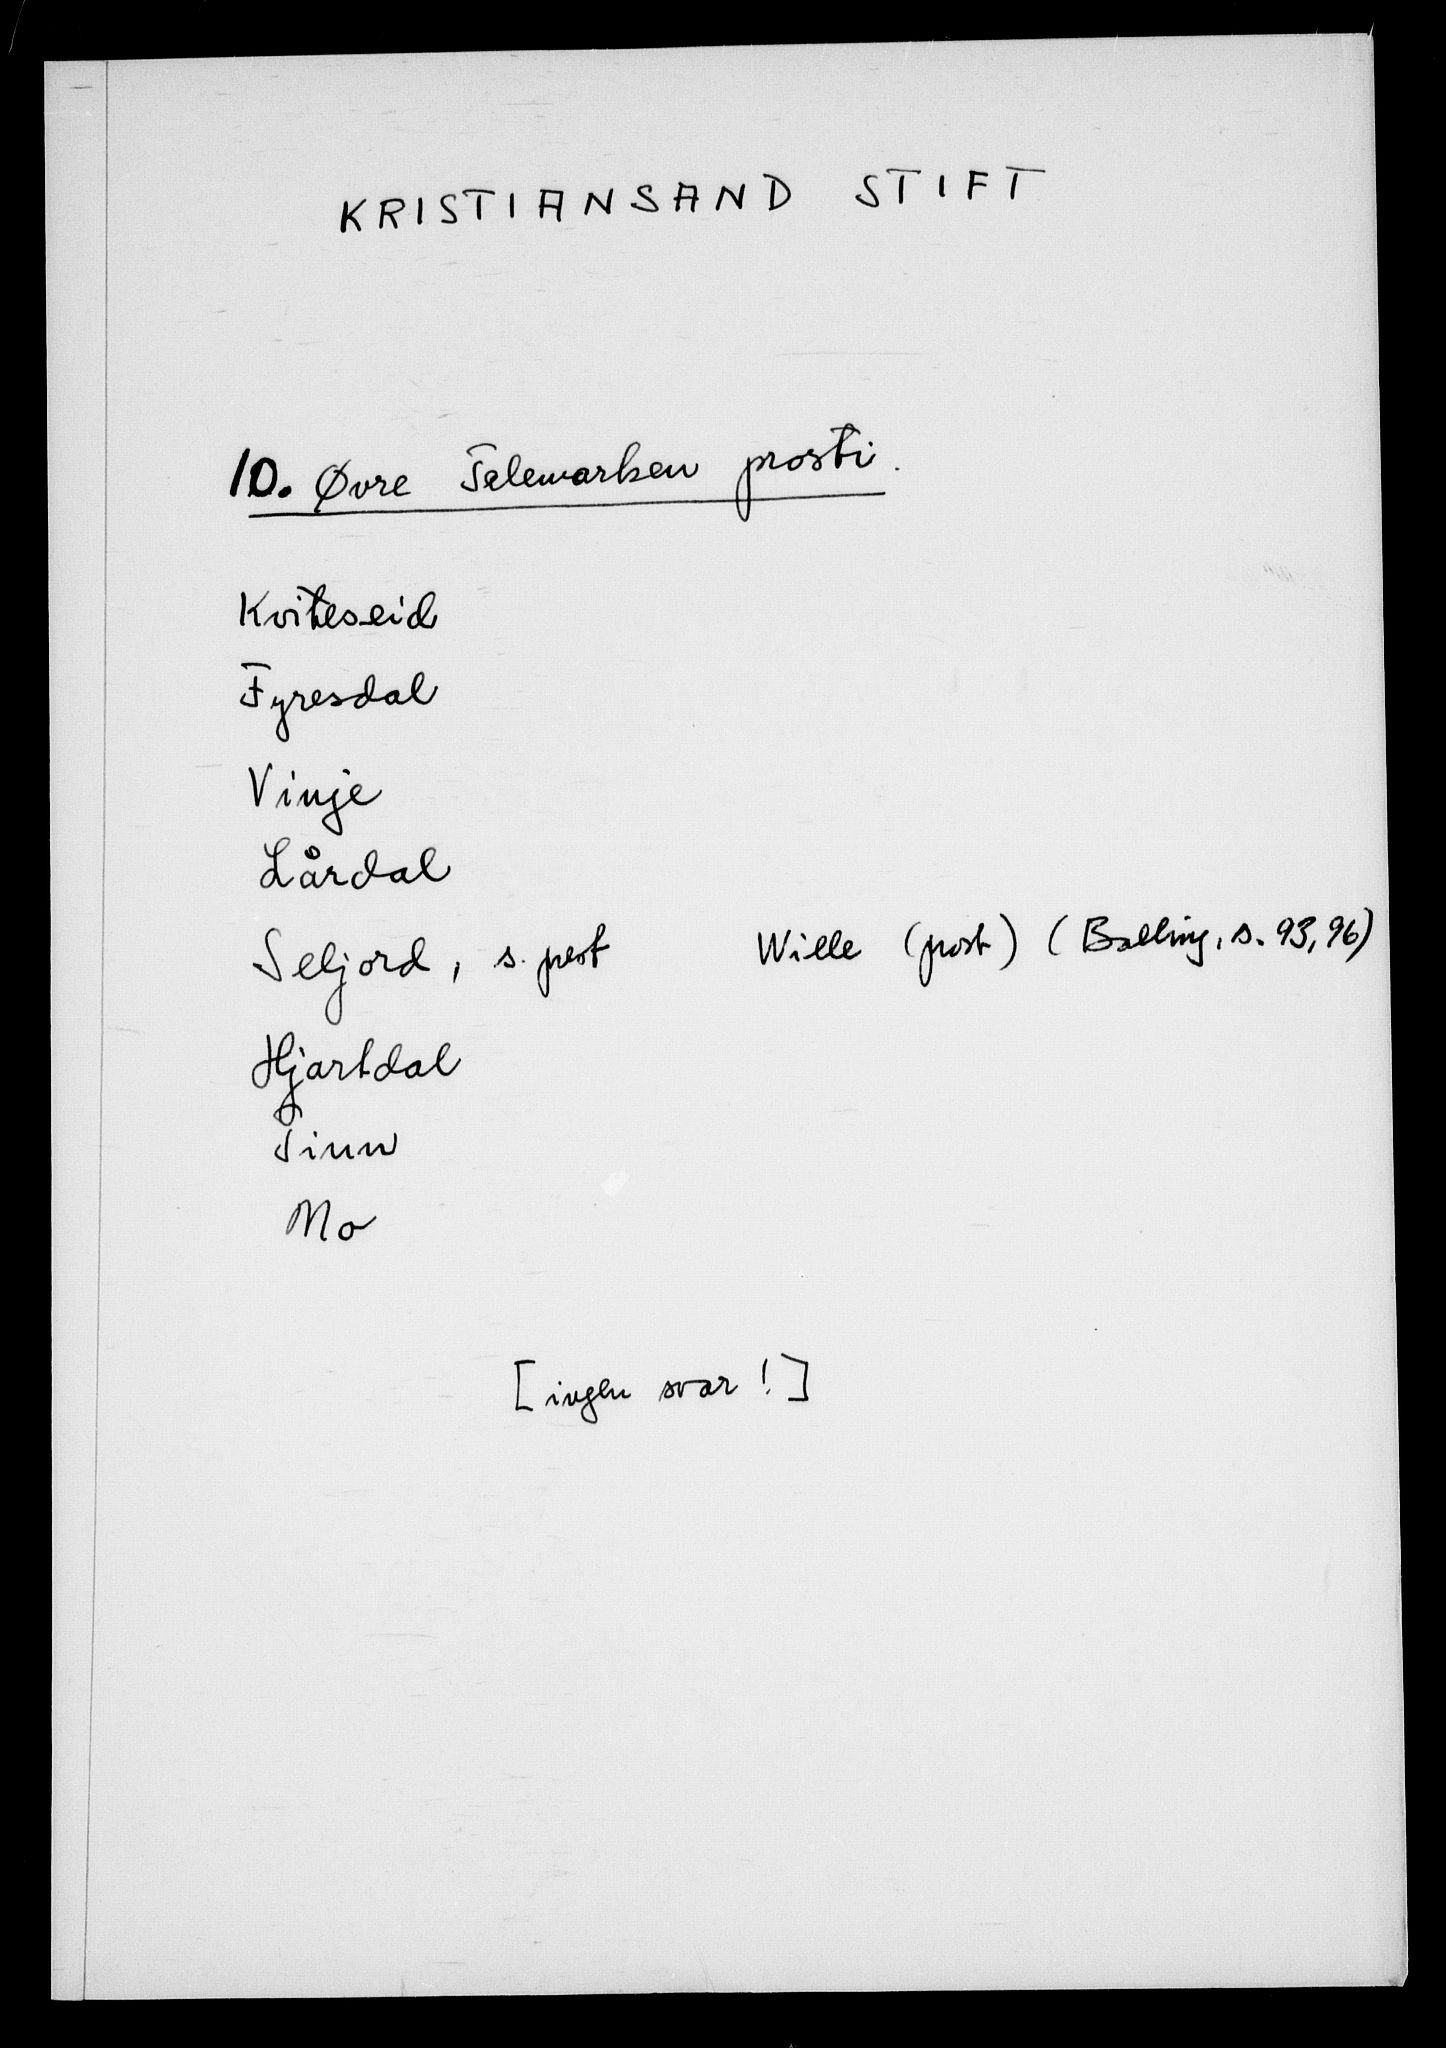 KRISTIANSAND STIFT
10. Øvre Telemarken prosti.
Kviteseid
Fyresdal
Vinje
Lårdal
Seljord, s. prest Wille (prost) (Balling, s. 93, 96)
Hjartdal
Tinn
Mo
[ingen svar!]